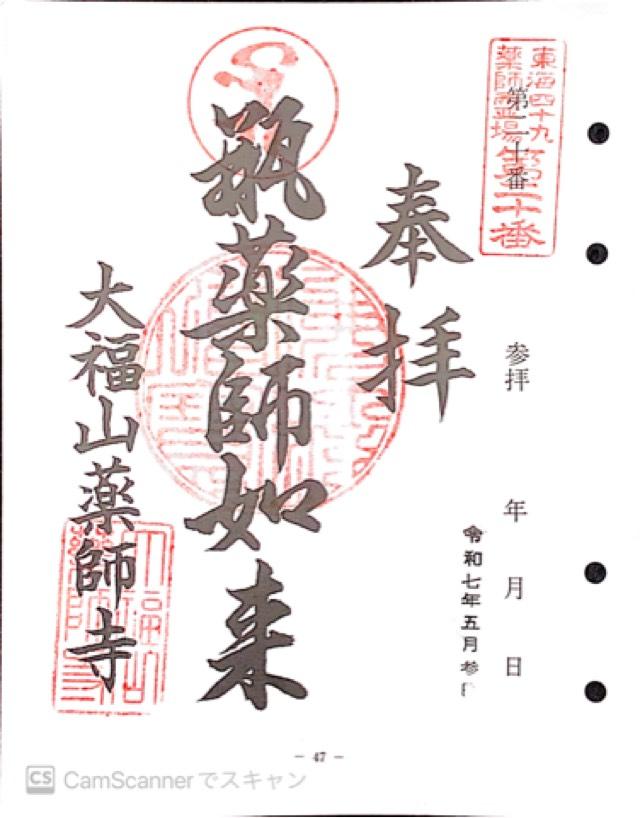 東海四十九
薬師霊場第二十番
第二十番
参拝 年 月 日
令和七年五月参
奉拝
瓶薬師如来
大福山薬師寺
- 47 -
CS CamScannerでスキャン